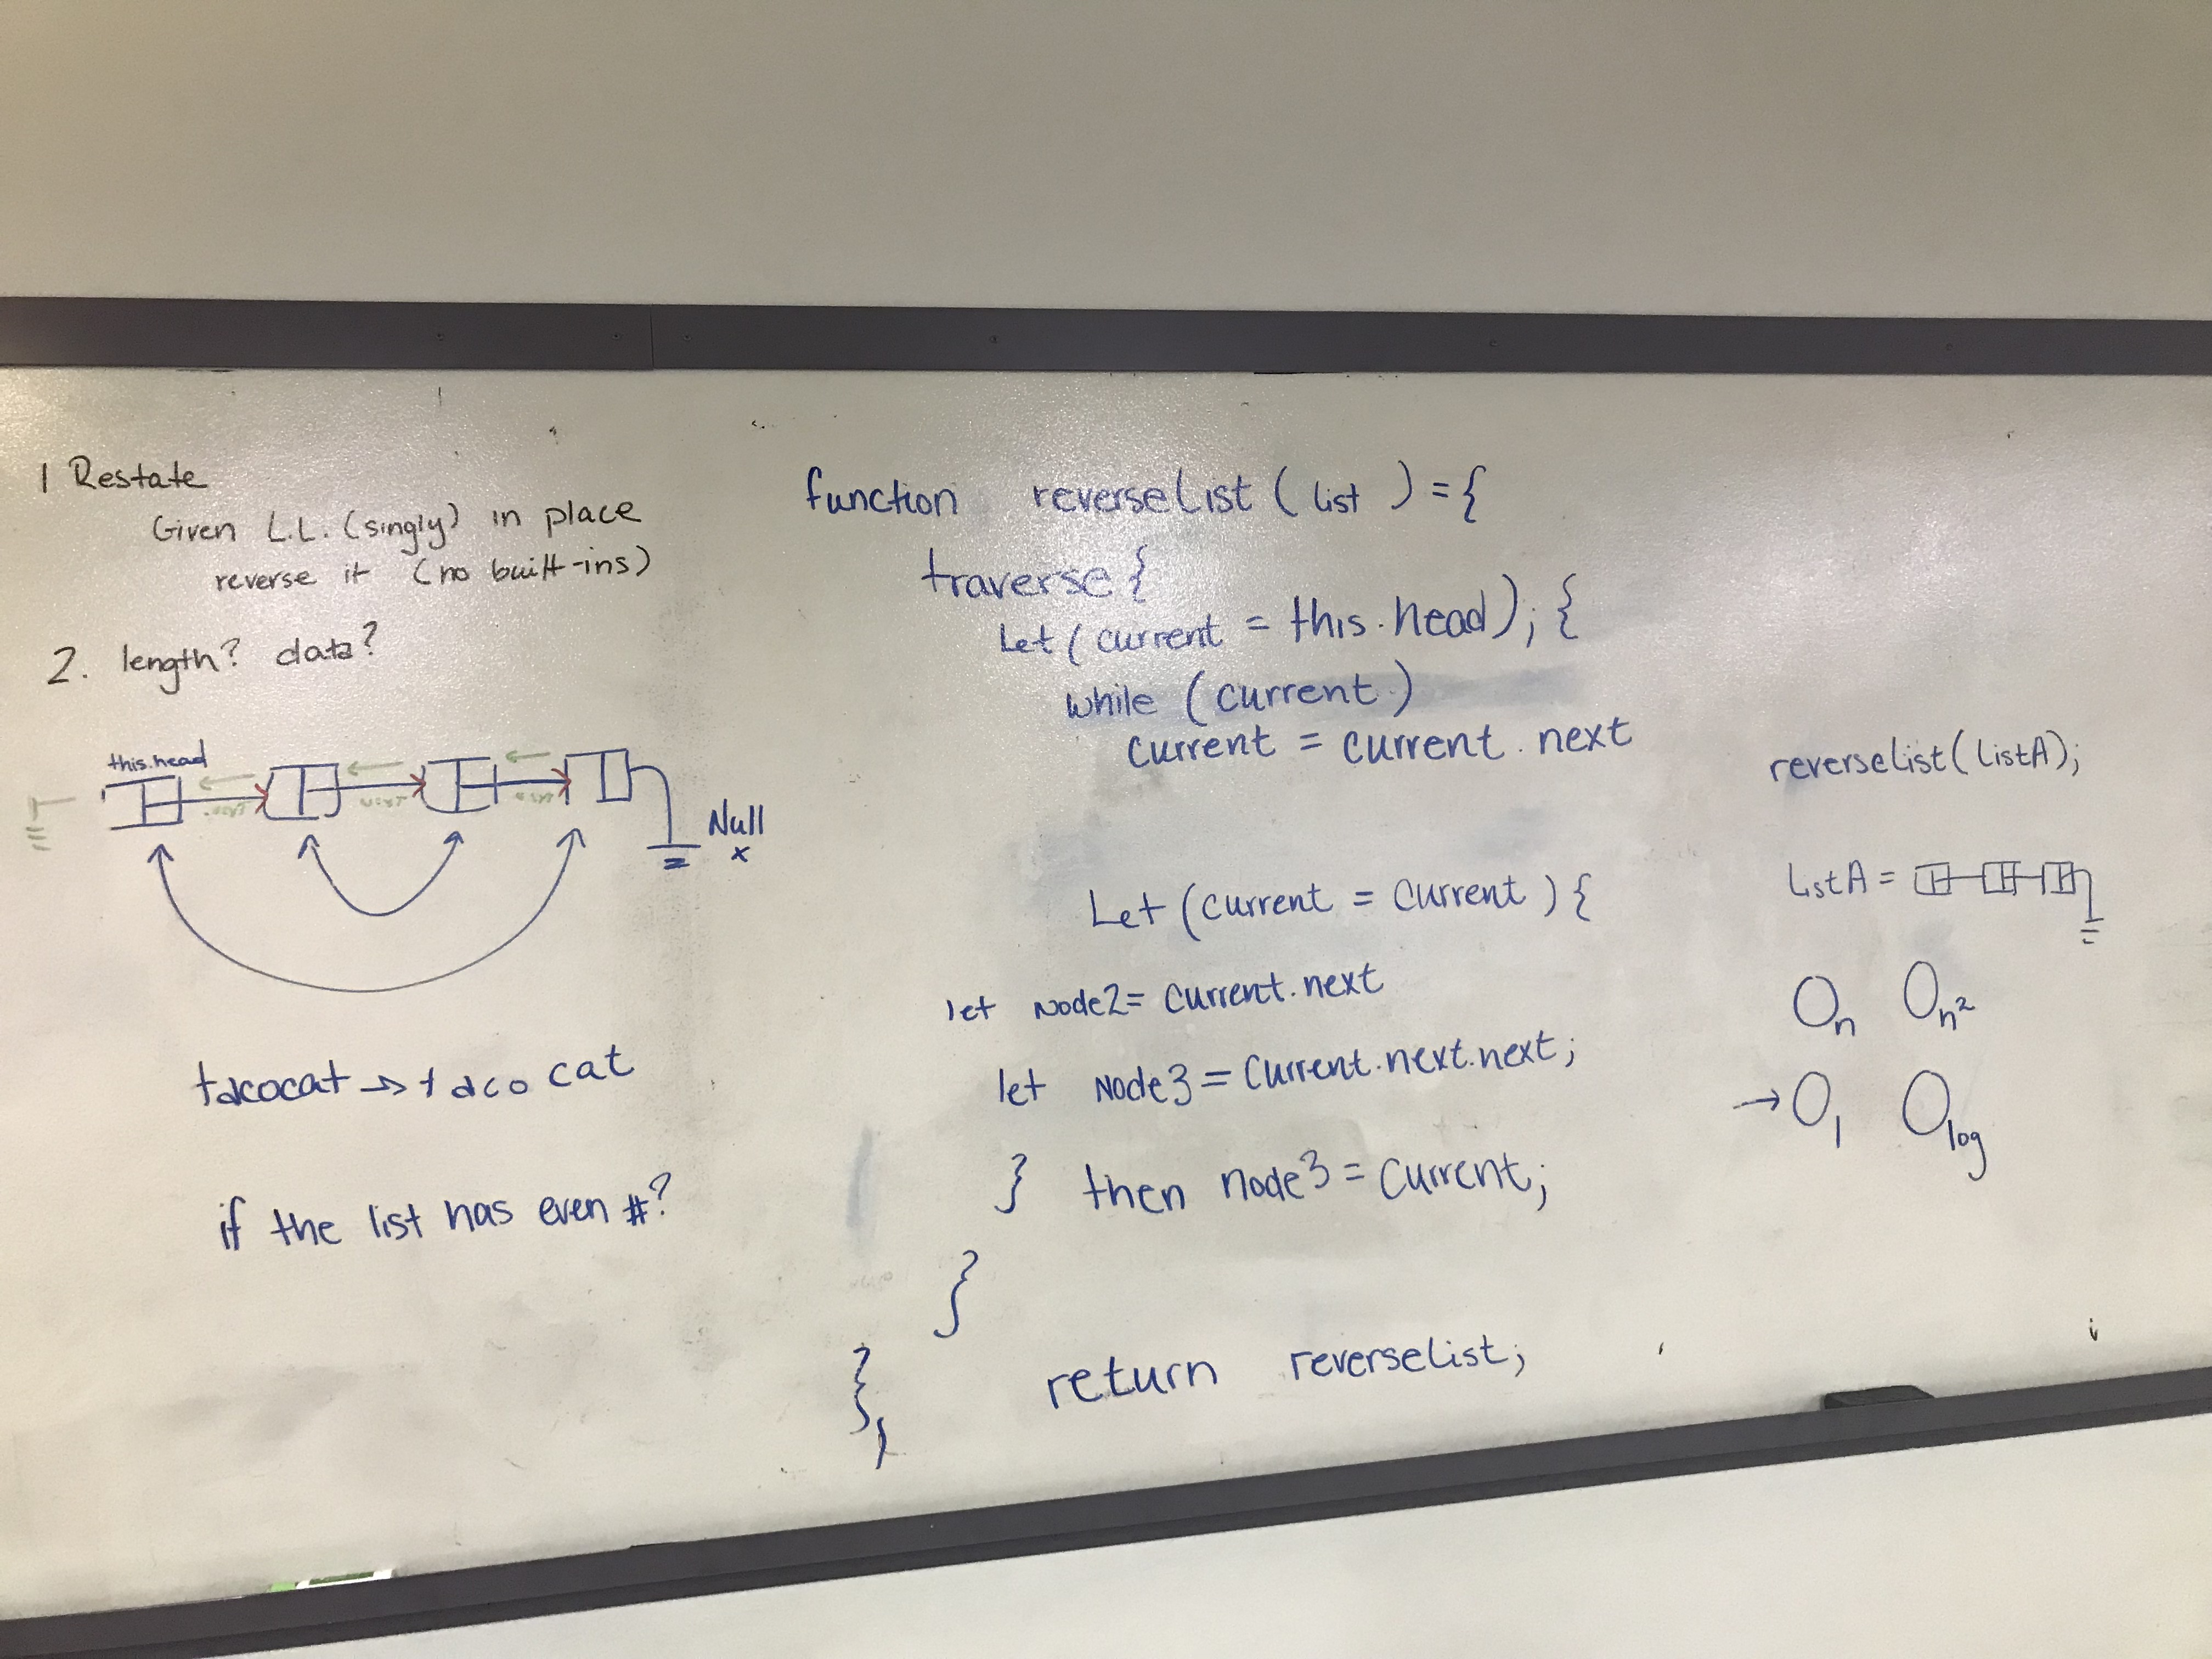 1 Restate
Given L.L. (singly) in place
reverse it (no built-ins)
2. length? data?
this.head
next next next
Null
x
tacocat → taco cat
if the list has even #?
function reverseList ( list ) = {
traverse {
Let ( current = this.head ); {
while ( current )
current = current.next
Let ( current = current ) {
let Node2 = current.next
let Node3 = current.next.next;
} then node3 = current;
}
};
return reverseList;
reverseList(listA);
ListA =
On On²
→ O1 Olog